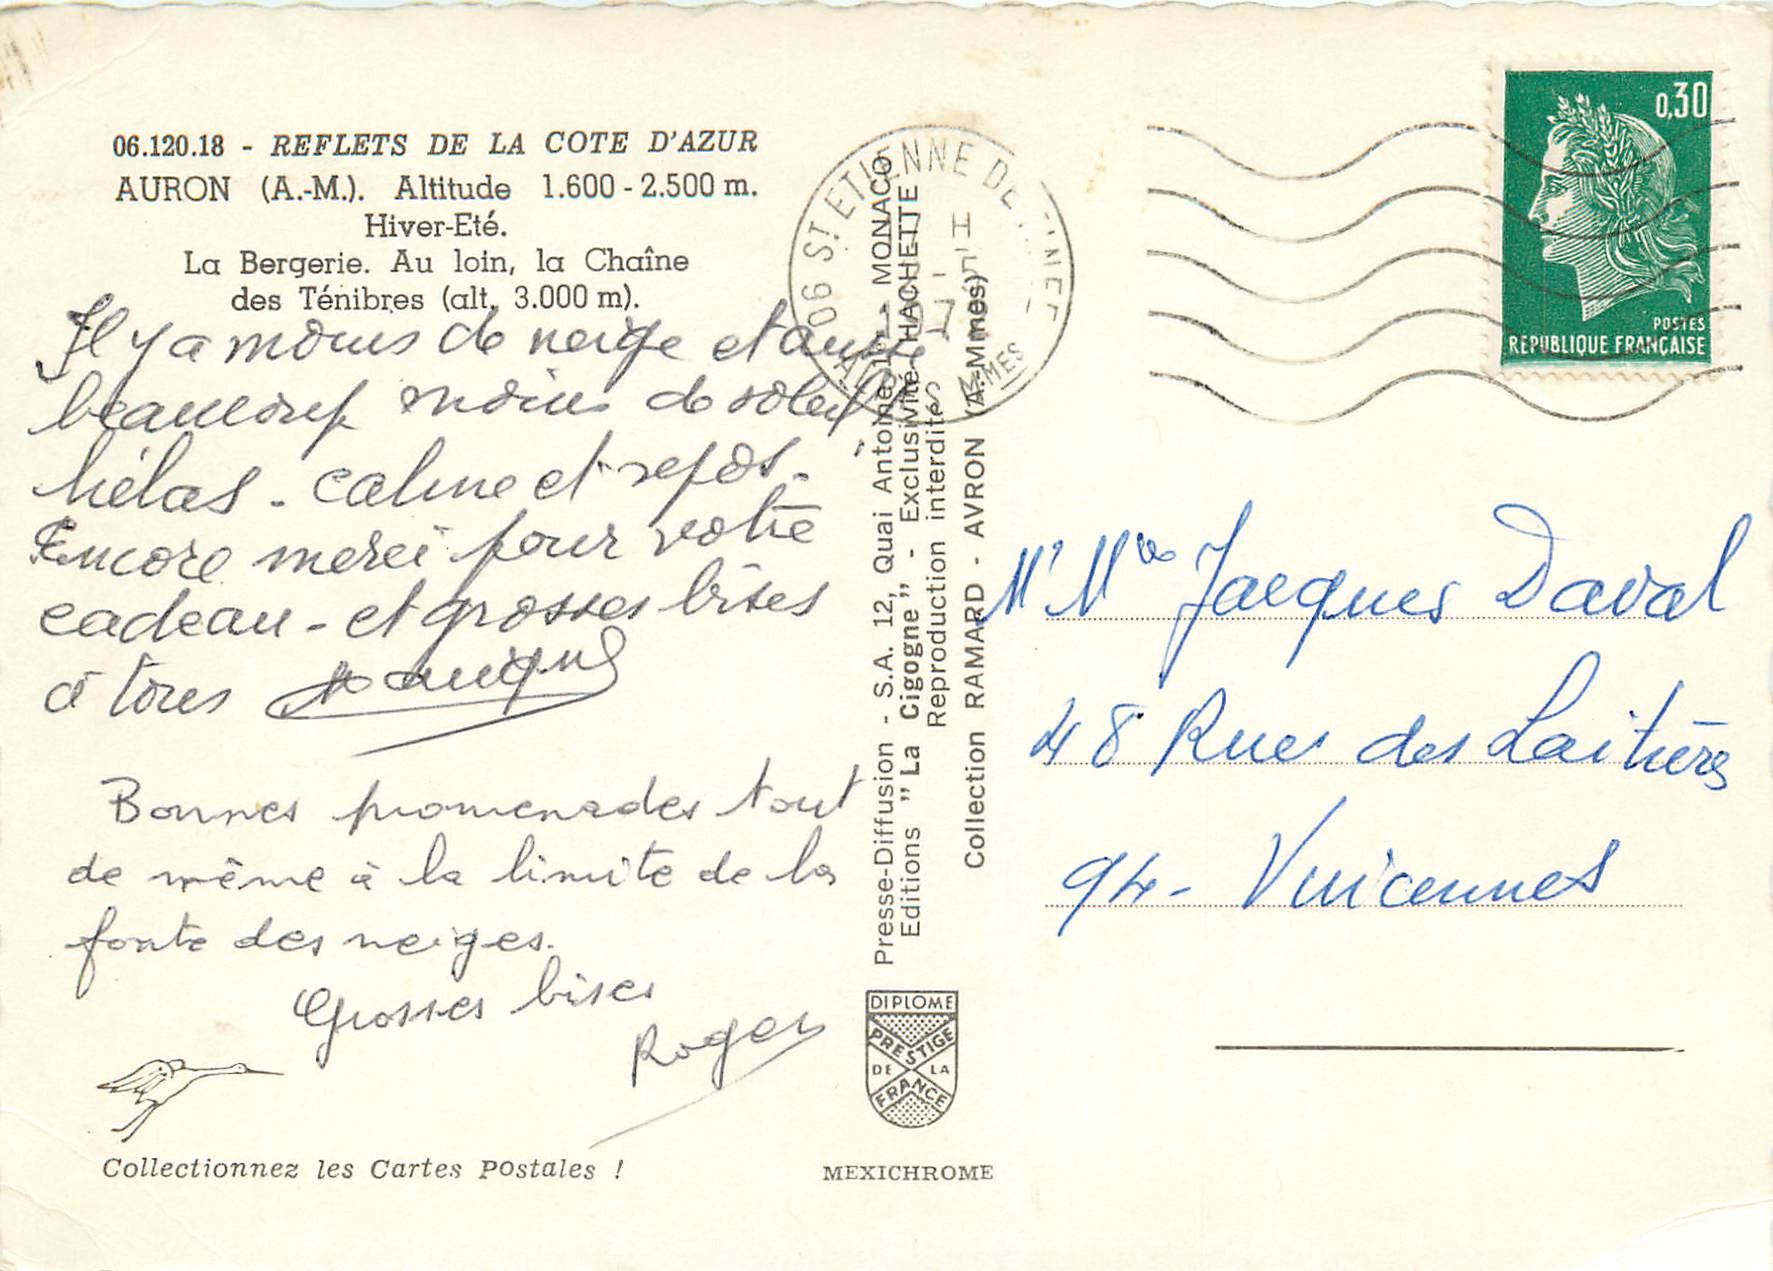 06.120.18 - REFLETS DE LA COTE D'AZUR
AURON (A.-M.). Altitude 1.600 - 2.500 m.
Hiver-Eté.
La Bergerie. Au loin, la Chaîne
des Ténibres (alt. 3.000 m).
Il y a moins de neige et aussi
beaucoup moins de soleil
hélas - calme et repos -
Encore merci pour votre
cadeau - et grosses bises
à tous
Bonnes promenades tout
de même à la limite de la
fonte des neiges.
Grosses bises
Roger
Collectionnez les Cartes Postales !
Presse-Diffusion - S.A. 12, Quai Antoine 1er - MONACO
Editions " La Cigogne " - Exclusivité HACHETTE
Reproduction interdite
Collection RAMARD - AVRON (A.-Mmes)
DIPLOME
PRESTIGE
DE LA
FRANCE
MEXICHROME
06 ST ETIENNE DE TINEE
0,30
POSTES
REPUBLIQUE FRANÇAISE
Mr Mme Jacques Daval
48 Rue des Laitières
94 - Vincennes